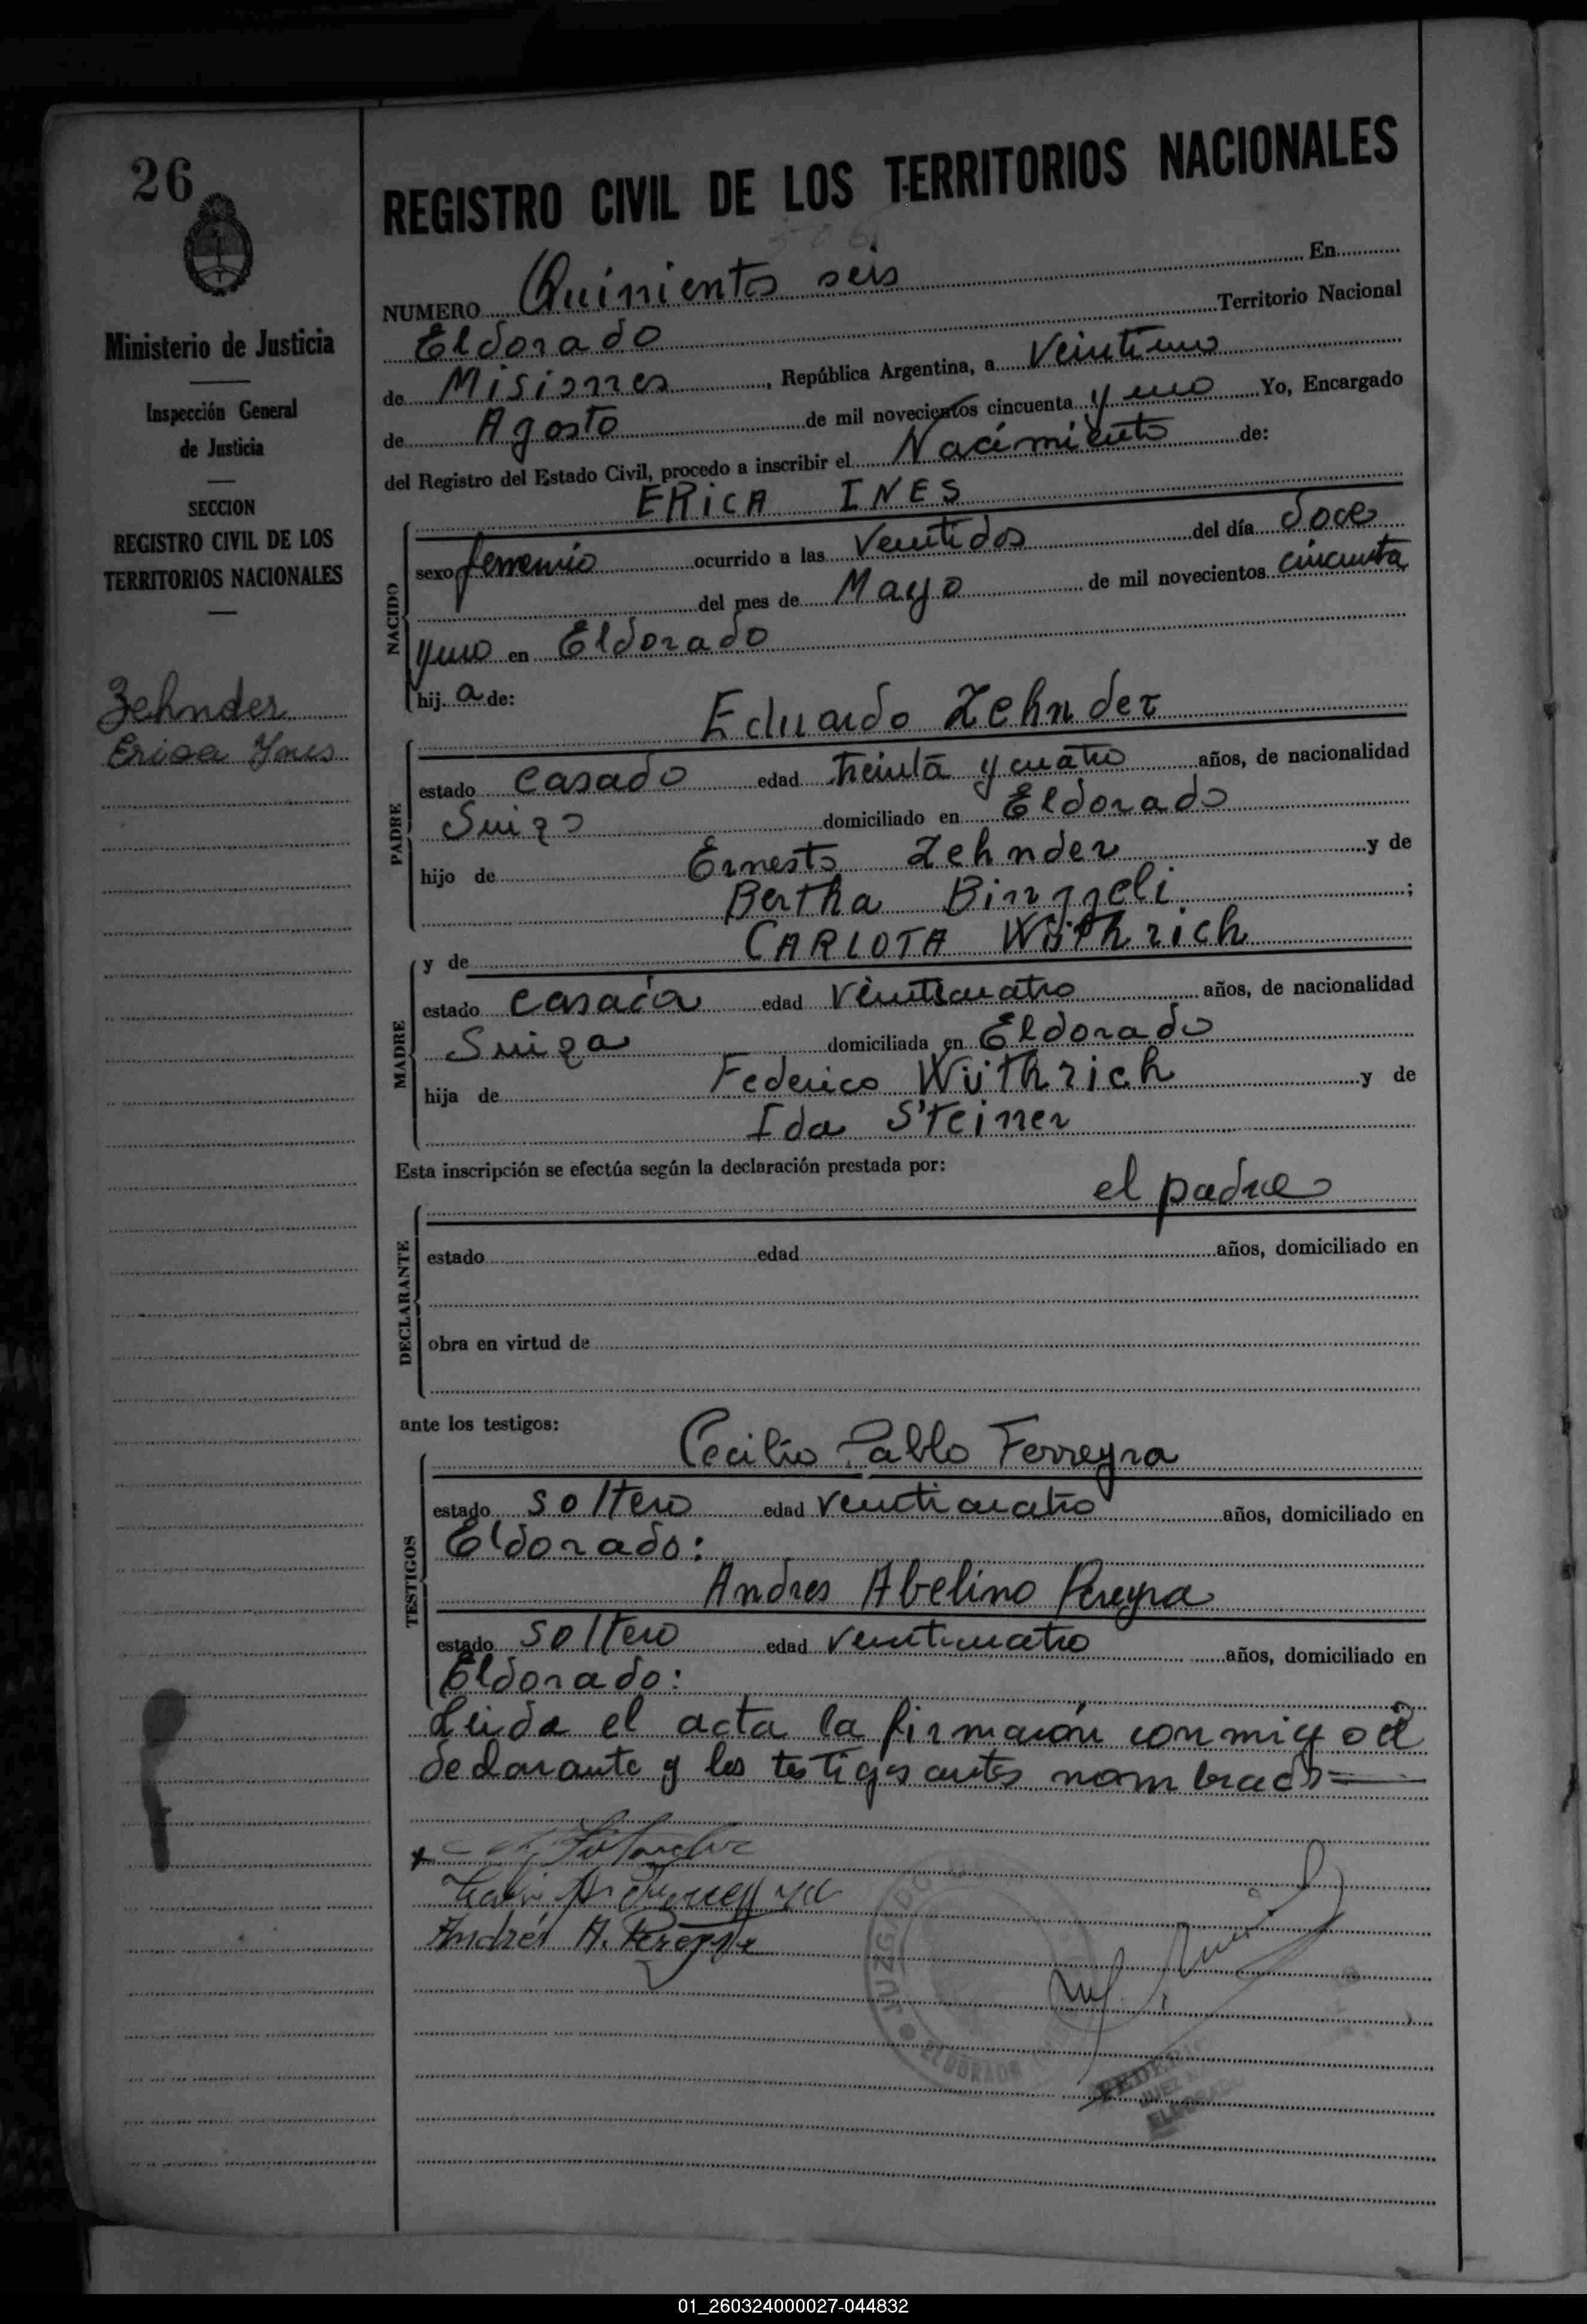 26
Ministerio de Justicia
Inspección General
de Justicia
SECCION
REGISTRO CIVIL DE LOS
TERRITORIOS NACIONALES
Zehnder
Erica Ynes
REGISTRO CIVIL DE LOS TERRITORIOS NACIONALES
506
NUMERO Quinientos seis En
Eldorado Territorio Nacional
de Misiones, República Argentina, a Veintiuno
de Agosto de mil novecientos cincuenta y uno Yo, Encargado
del Registro del Estado Civil, procedo a inscribir el Nacimiento de:
ERICA INES
NACIDO
sexo femenino ocurrido a las Ventidos del día doce
del mes de Mayo de mil novecientos cincuenta
y uno en Eldorado
hij a de:
Eduardo Zehnder
PADRE
estado casado edad treinta y cuatro años, de nacionalidad
Suizo domiciliado en Eldorado
hijo de Ernesto Zehnder y de
Bertha Binggeli;
y de CARLOTA Wüthrich
MADRE
estado casada edad Veinticuatro años, de nacionalidad
Suiza domiciliada en Eldorado
hija de Federico Wüthrich y de
Ida Steiner
Esta inscripción se efectúa según la declaración prestada por:
el padre
DECLARANTE
estado edad años, domiciliado en
obra en virtud de
ante los testigos:
Cecilio Pablo Ferreyra
TESTIGOS
estado soltero edad venticuatro años, domiciliado en
Eldorado:
Andres Abelino Pereyra
estado soltero edad venticuatro años, domiciliado en
Eldorado:
Leida el acta la firmaron conmigo el
declarante y los testigos antes nombrados=
Andrés A. Pereyra
JUZGADO
ELDORADO
JUEZ
ELDORADO
01_260324000027-044832